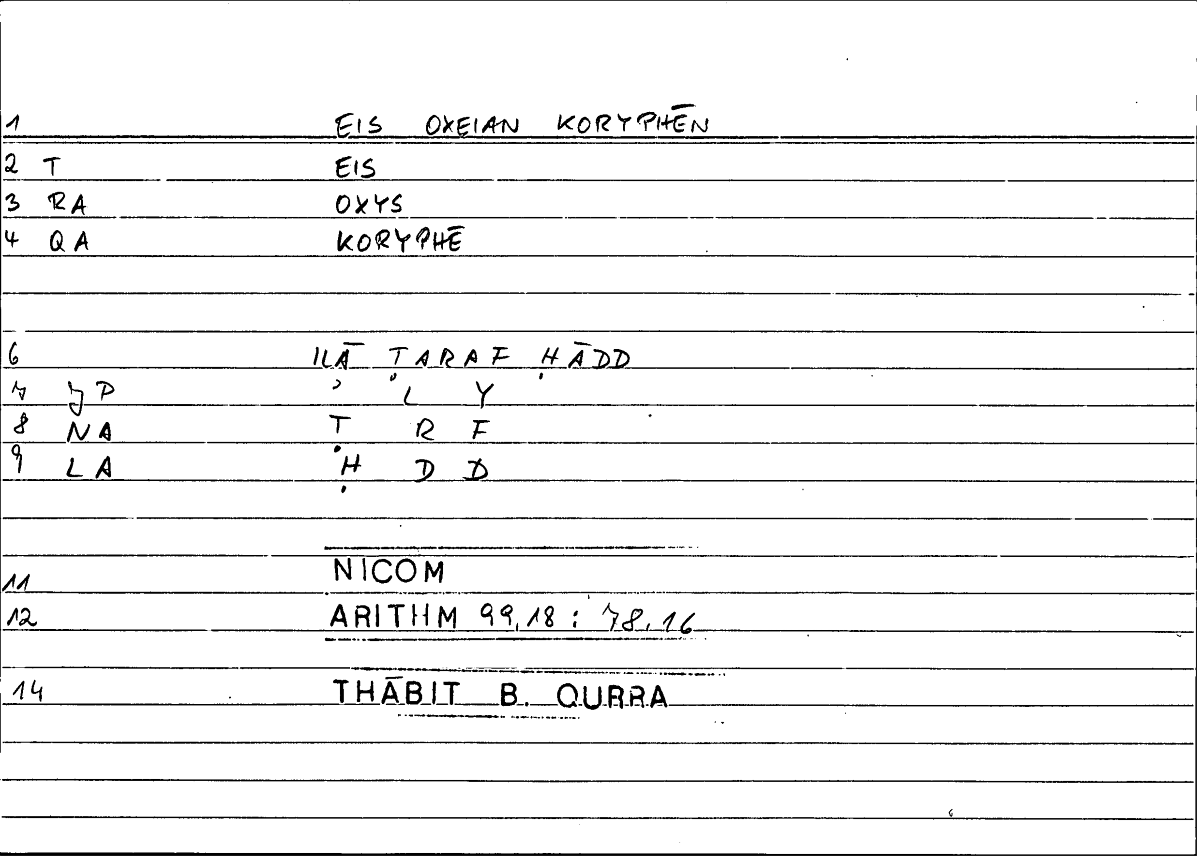 1 EIS OXEIAN KORYPHĒN
2 T EIS
3 RA OXYS
4 QA KORYPHĒ
6 ILĀ ṬARAF ḤĀDD
7 JP ʾ L Y
8 NA Ṭ R F
9 LA Ḥ D D
11 NICOM
12 ARITHM 99,18 : 78,16
14 THĀBIT B. QURRA